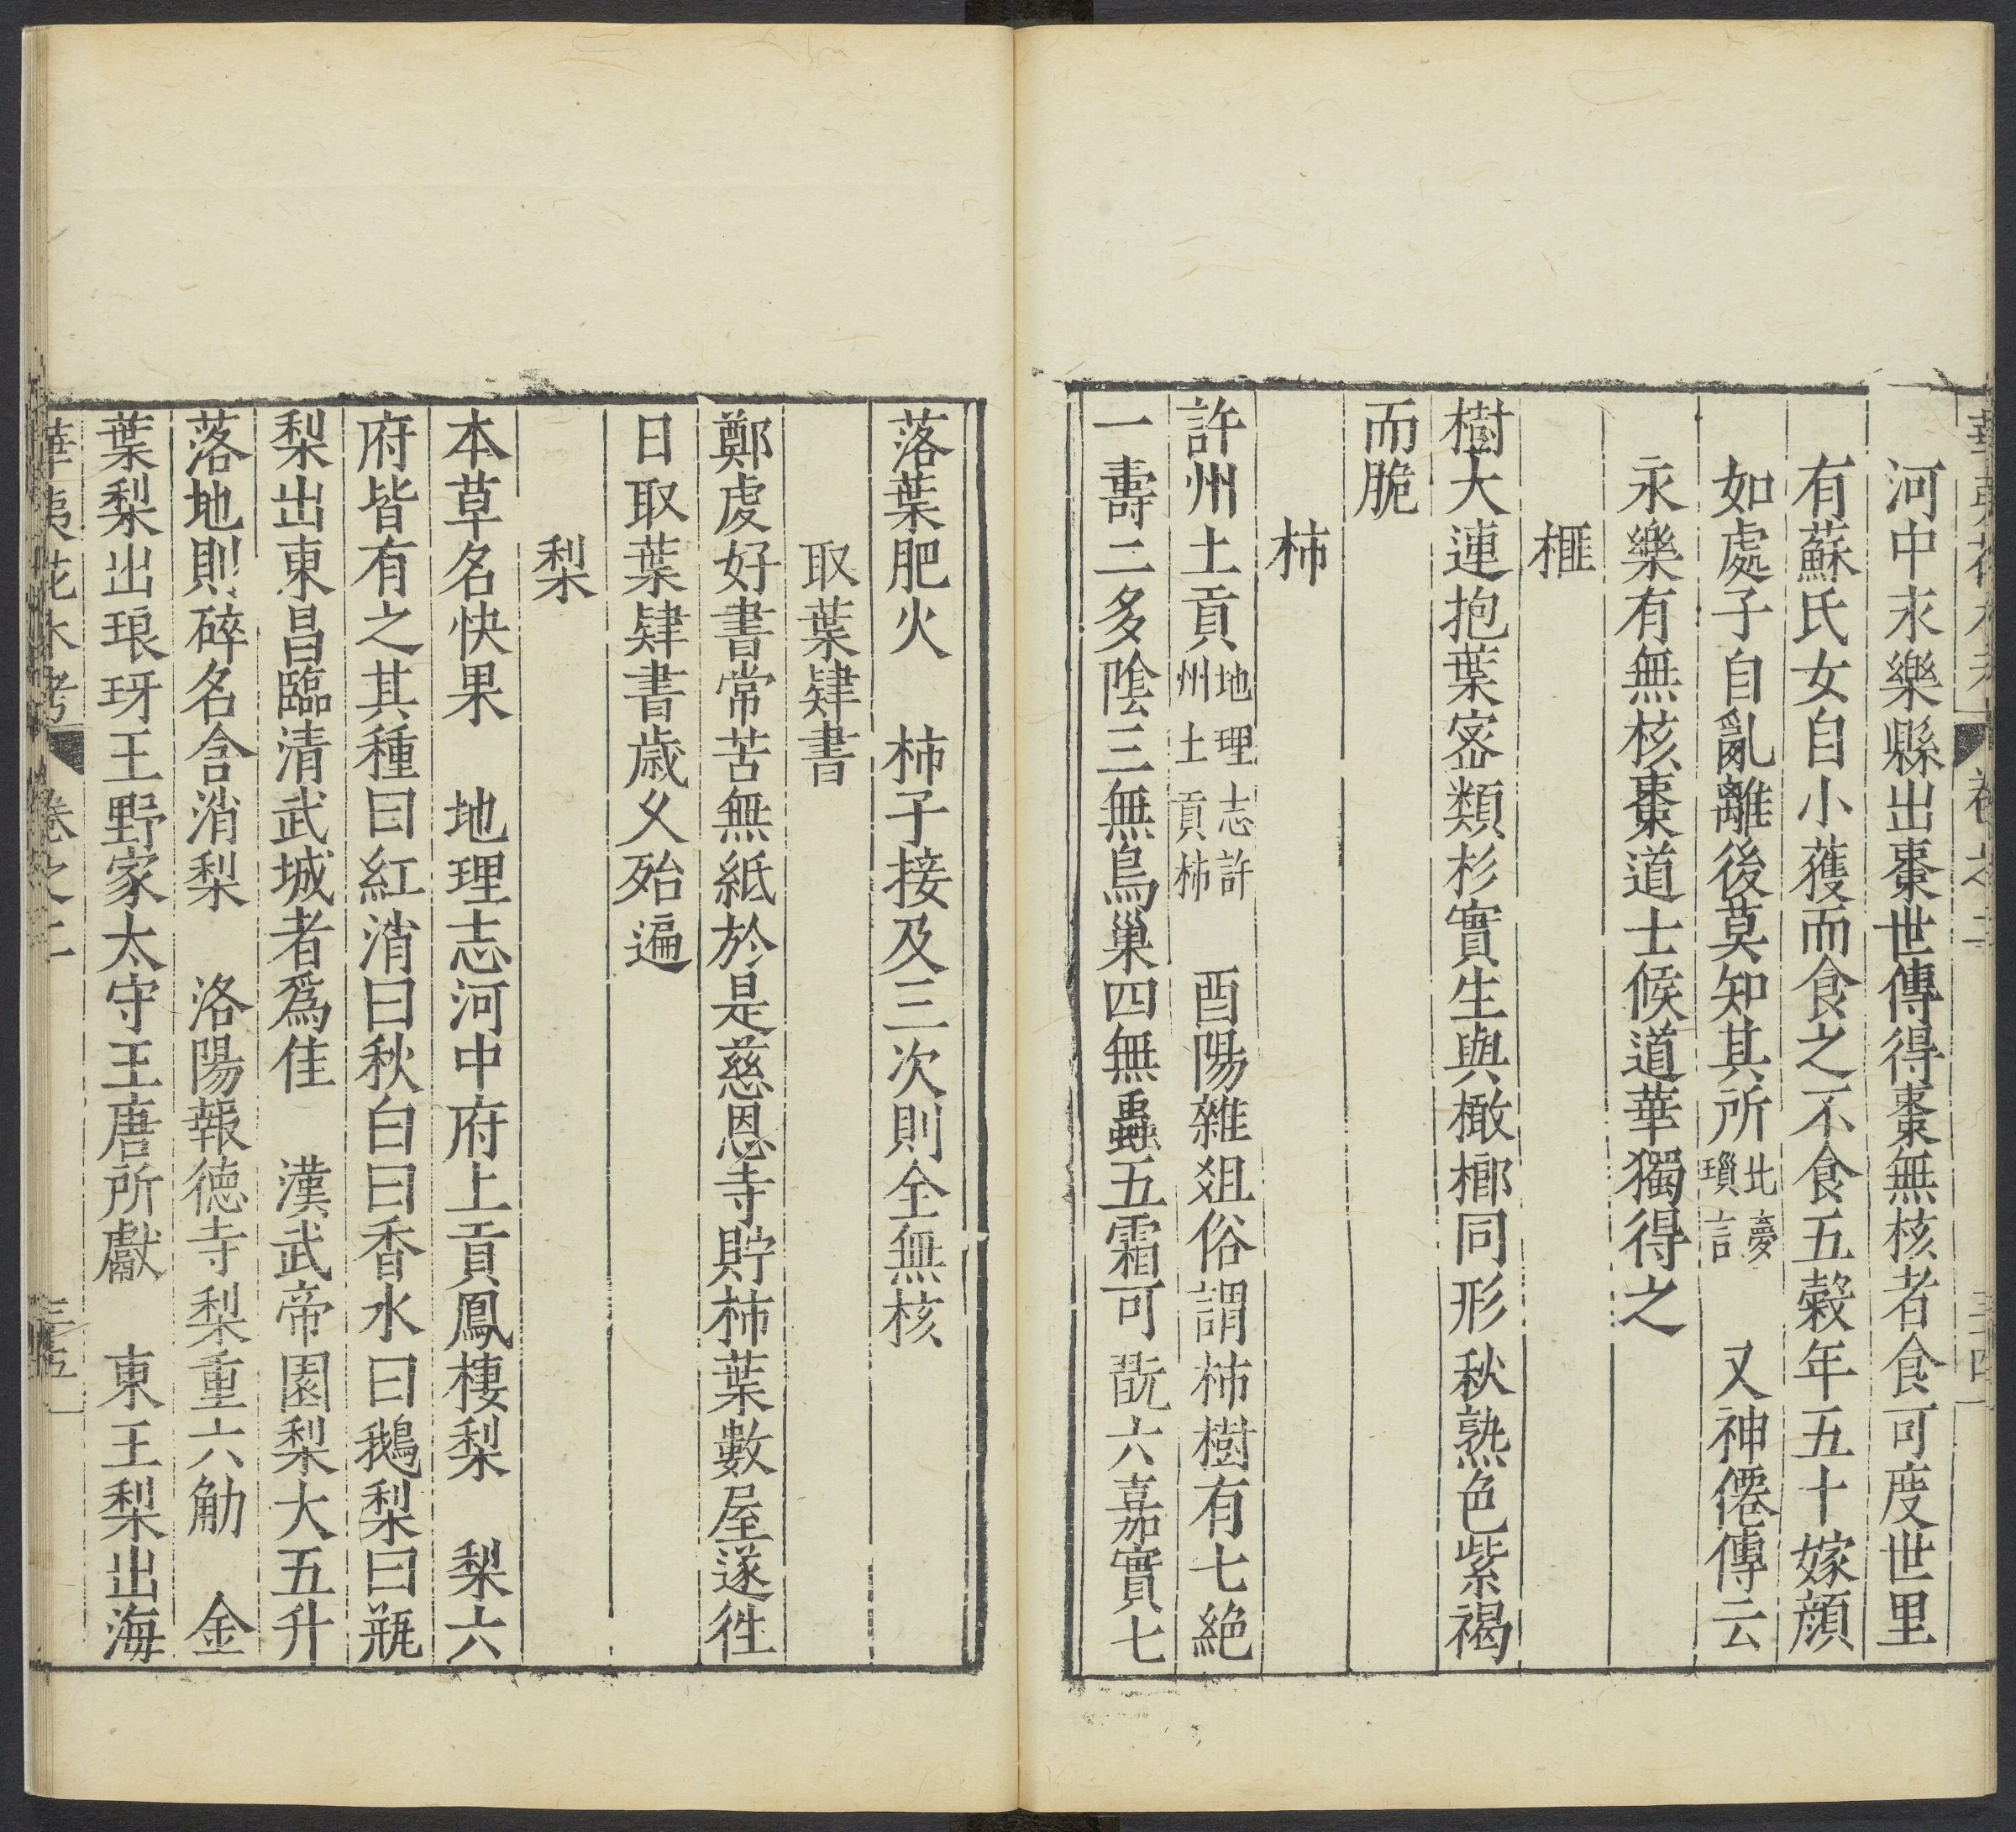 河中永樂縣出棗世傳得棗無核者食可度世里
有蘇氏女自小獲而食之不食五穀年五十嫁顔
如處子自亂離後莫知其所北夢瑣言　又神僊傳云
永樂有無核棗道士候道華獨得之
榧
樹大連抱葉宻類杉實生與橄榔同形秋熟色紫褐
而脆
柿
許州土貢地理志許州土貢柿　酉陽雜爼俗謂柿樹有七絶
一壽二多隂三無鳥巢四無蟲五霜可翫六嘉實七
落葉肥火　柿子接及三次則全無核
取葉肄書
鄭虔好書常苦無紙於是慈恩寺貯柿葉數屋遂徃
日取葉肄書歳久殆遍
梨
本草名快果　地理志河中府上貢鳳棲梨　梨六
府皆有之其種曰紅消曰秋白曰香水曰鵝梨曰瓶
梨出東昌臨清武城者爲佳　漢武帝園梨大五升
落地則碎名含消梨　洛陽報德寺梨重六觔　金
葉梨出琅玡王野家太守王唐所獻　東王梨出海
華夷花木考　卷之二　三五